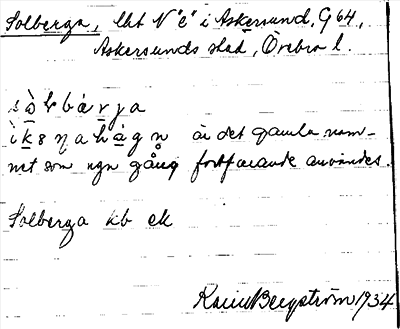 Solberga, lht N "e" i Askersund, G 64,
Askersunds stad, Örebro l.
sòlbárja
ìksŋahágn är det gamla nam-
net som ngn gång fortfarande användes.
Solberga kb ek
Karin Bergström 1934